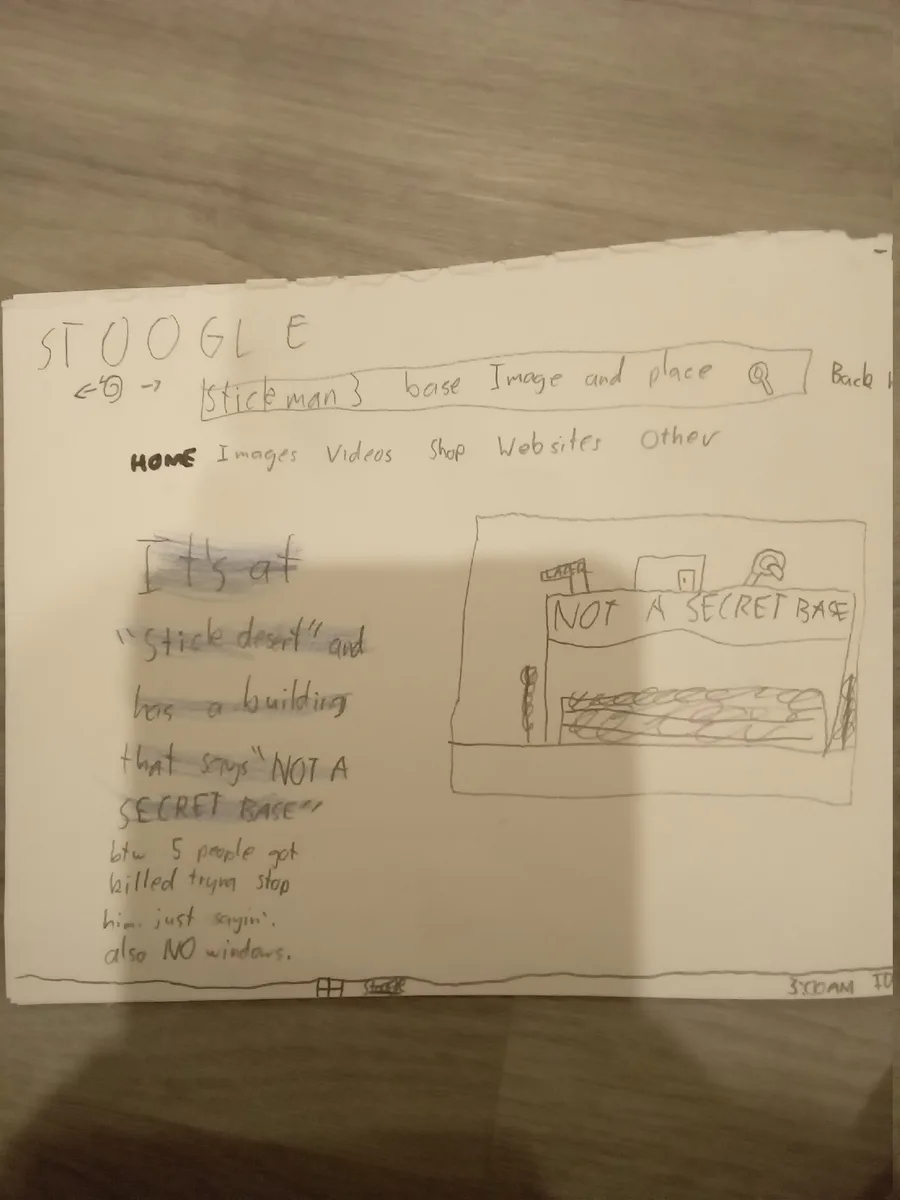 STOOGLE
Stickman3 base Image and place
Back
HOME Images Videos Shop Websites Other
It's at
"Stick desert" and
has a building
that says "NOT A
SECRET BASE"
btw 5 people got
killed tryna stop
him. just sayin'.
also NO windows.
LAZER
NOT A SECRET BASE
3:00AM